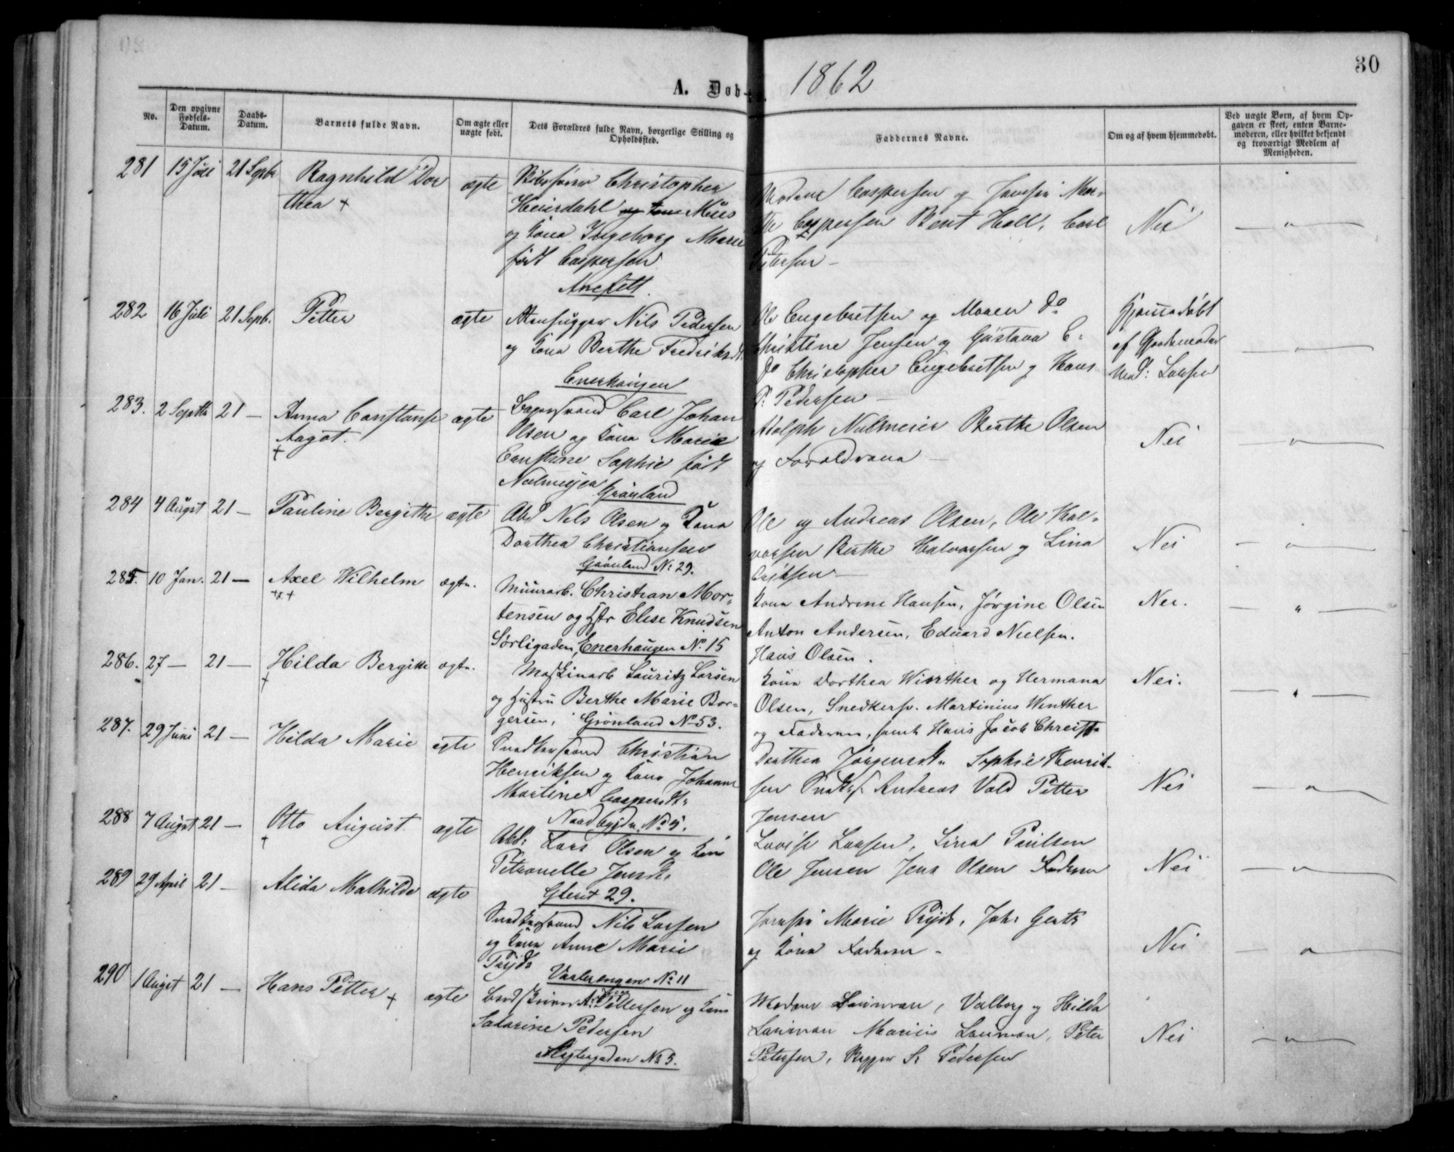 30
A. Døbte. 1862
No.
Den opgivne Fødsels-Datum.
Daabs-Datum.
Barnets fulde Navn.
Om ægte eller uægte født.
Dets Forældres fulde Navn, borgerlige Stilling og Opholdssted.
Faddernes Navne.
Om og af hvem hjemmedøbt.
Ved uægte Børn, af hvem Opgaven er skeet, enten Barnemoderen, eller hvilket bekjendt og troværdigt Medlem af Menigheden.
281 15 Juli 21 Septbr Ragnhild Dor
thea +
ægte
Christopher
Heierdahl
og Kona Ingeborg Marie
født Caspersen
Anefett.
Madam Caspersen og Jomfru
Caspersen Bent Holl, Carl
Petersen
Nei
282 16 Juli 21 Septb. Petter ægte
Nils Pedersen
og Kona Berthe Fredriksdt
Enerhaugen
Ole Engebretsen og Maren do
Christine Jensen og Gustava E.
do Christopher Engebretsen og Hans
P. Pedersen
Hjemmedøbt
af Gjordemoder
Mad: Larsen
283. 2 Septb 21 — Anna Constanse
Aagot.
+
ægte
Carl Johan
Olsen og Kona Marie
Constanse Sophie født
Nielmeijer Grønland
Adolph Nielmeier Berthe Olsen
og Forældrene
Nei
284 4 August 21 — Pauline Bergitte ægte
Abd Nils Olsen og Kona
Dorthea Christiansen
Grønland No. 29.
Ole og Andreas Olsen, Ole Hal-
vorsen Berthe Halvorsen og Lina
Nei
285. 10 Jan. 21 — Axel Wilhelm ægte.
+x+
Muurarb. Christian Mor-
tensen og Hstr Elise Knudsen
Sørligaden, Enerhaugen No 15
Kone Andrine Hansen, Jørgine Olsen
Anton Andersen, Eduard Nielsen.
Hans Olsen.
Nei.
286. 27 — 21 — Hilda Bergitte ægte.
+
Maskinarb Lauritz Larsen
og Hustru Berthe Marie Bor-
gersen, Grønland No 53.
Kone Dorthea Winther og Hermana
Olsen, Snedkersv. Martinius Winther
og Faderen, samt Hans Jacob Christ
Nei.
287. 29 Juni 21 — Hilda Marie ægte
Snedkersvend Christian
Henriksen og Kona Johanne
Martine Caspersdtr
Nordbygdn. No 5.
Dorthea Jørgensdtr Sophie Henrik-
sen Andreas Vold Petter
Jensen
Nei
288 7 August 21 — Otto August ægte
+
Abd: Lars Olsen og Kone
Petronelle Jensdtr
Gleret 29.
Lovise Larsen, Lina Paulsen
Ole Jensen Jens Olsen Faderen
Nei
289 29 April 21 — Alida Mathilde ægte
Snedkersvend Nils Larsen
og Kona Anne Marie
Vaalerengen No 11
Jomfru Marie Joh: Gerts
og Kona Faderen
Nei
290 1 August 21 — Hans Petter + ægte
Pettersen og Kone
Pedersen
Slagtergaden No 5.
Madam Laurman, Valborg og Hilda
Laurman Marius Laurman, Peter
Petersen, S. Pedersen
Nei